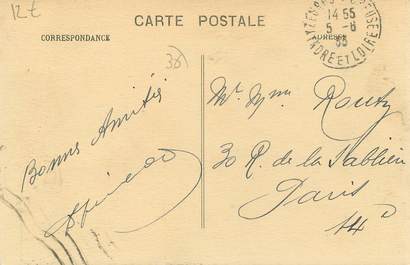 12 €
CARTE POSTALE
CORRESPONDANCE
ADRESSE
14 55
5-6
INDRE ET LOIRE
38
Bonnes Amitiés
Mr Mme
30 R. de la Sablière
Paris
14e